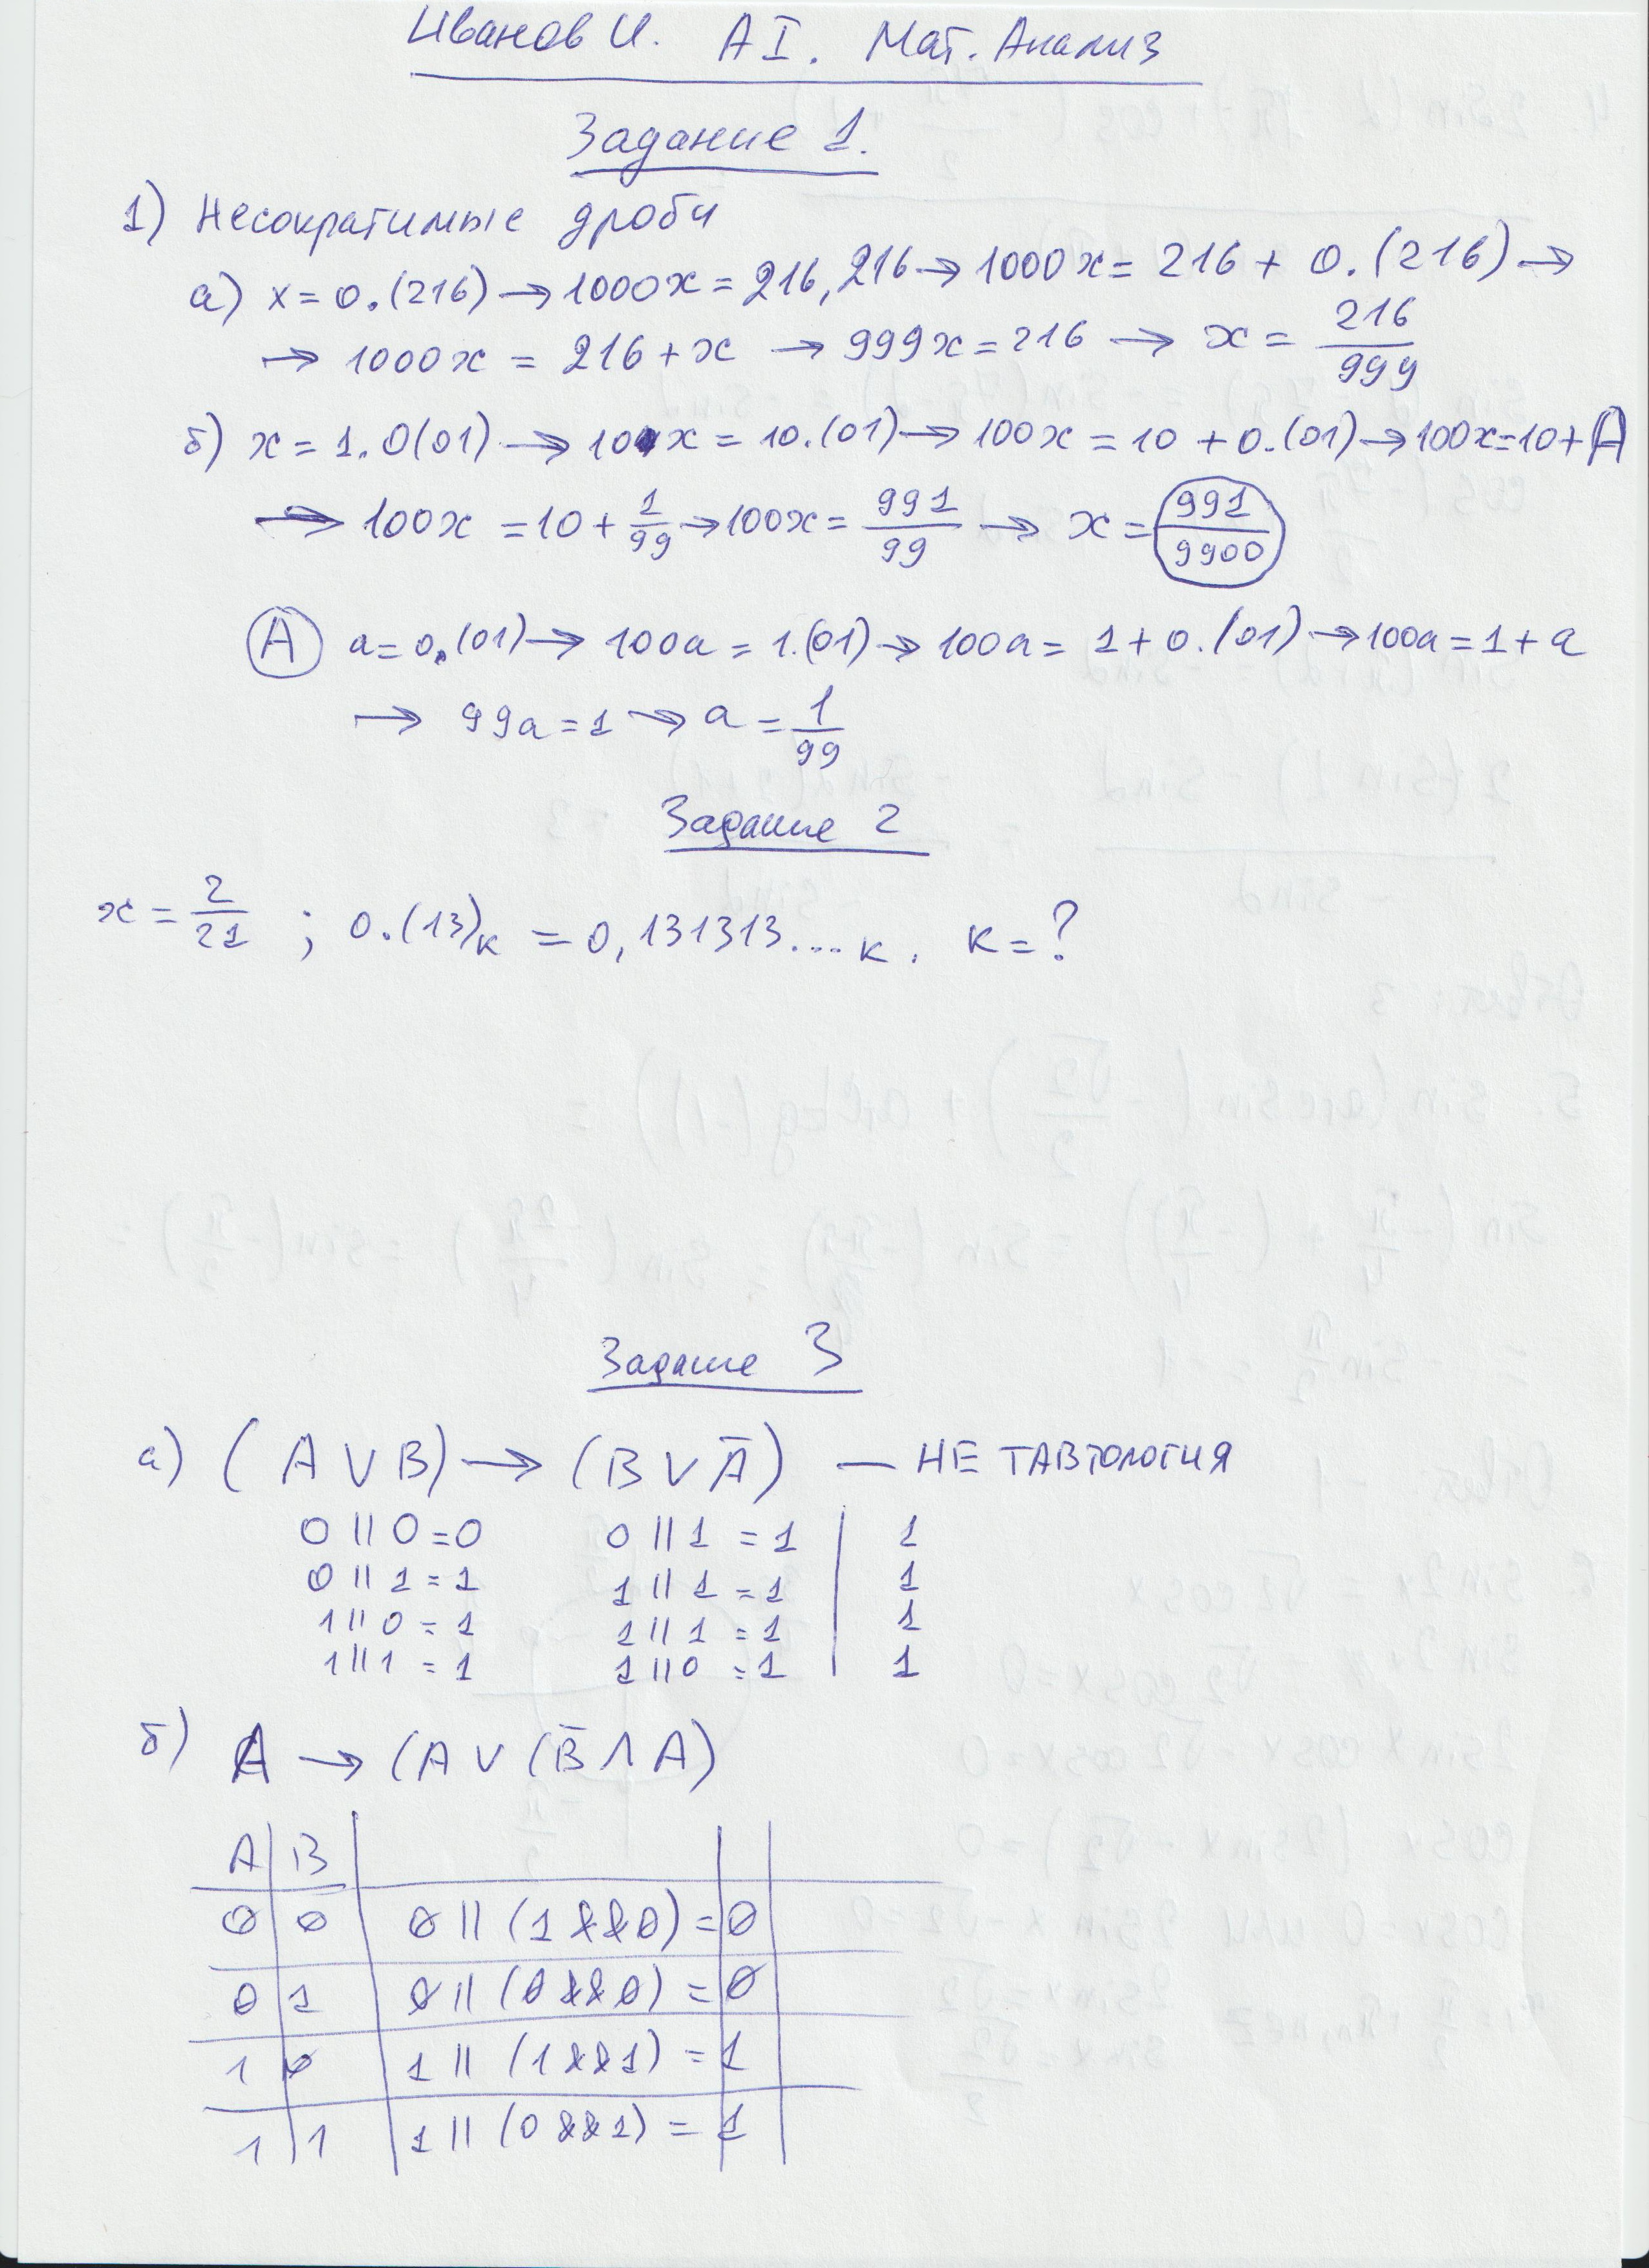 Иванов И. АI. Мат. Анализ
Задание 1.
1) Несократимые дроби
а) x = 0.(216) → 1000x = 216,216 → 1000x = 216 + 0.(216) →
→ 1000x = 216 + x → 999x = 216 → x = 216/999
б) x = 1.0(01) → 100x = 10.(01) → 100x = 10 + 0.(01) → 100x = 10 + A
→ 100x = 10 + 1/99 → 100x = 991/99 → x = 991/9900
A a = 0.(01) → 100a = 1.(01) → 100a = 1 + 0.(01) → 100a = 1 + a
→ 99a = 1 → a = 1/99
Задание 2
x = 2/21 ; 0.(13)к = 0,131313...к. к = ?
Задание 3
а) (A ∨ B) → (B ∨ Ā) — НЕ ТАВТОЛОГИЯ
0 || 0 = 0 0 || 1 = 1 | 1
0 || 1 = 1 1 || 1 = 1 | 1
1 || 0 = 1 1 || 1 = 1 | 1
1 || 1 = 1 1 || 0 = 1 | 1
б) A → (A ∨ (B̄ ∧ A)
A B
0 0 0 || (1 && 0) = 0
0 1 0 || (0 && 0) = 0
1 0 1 || (1 && 1) = 1
1 1 1 || (0 && 1) = 1